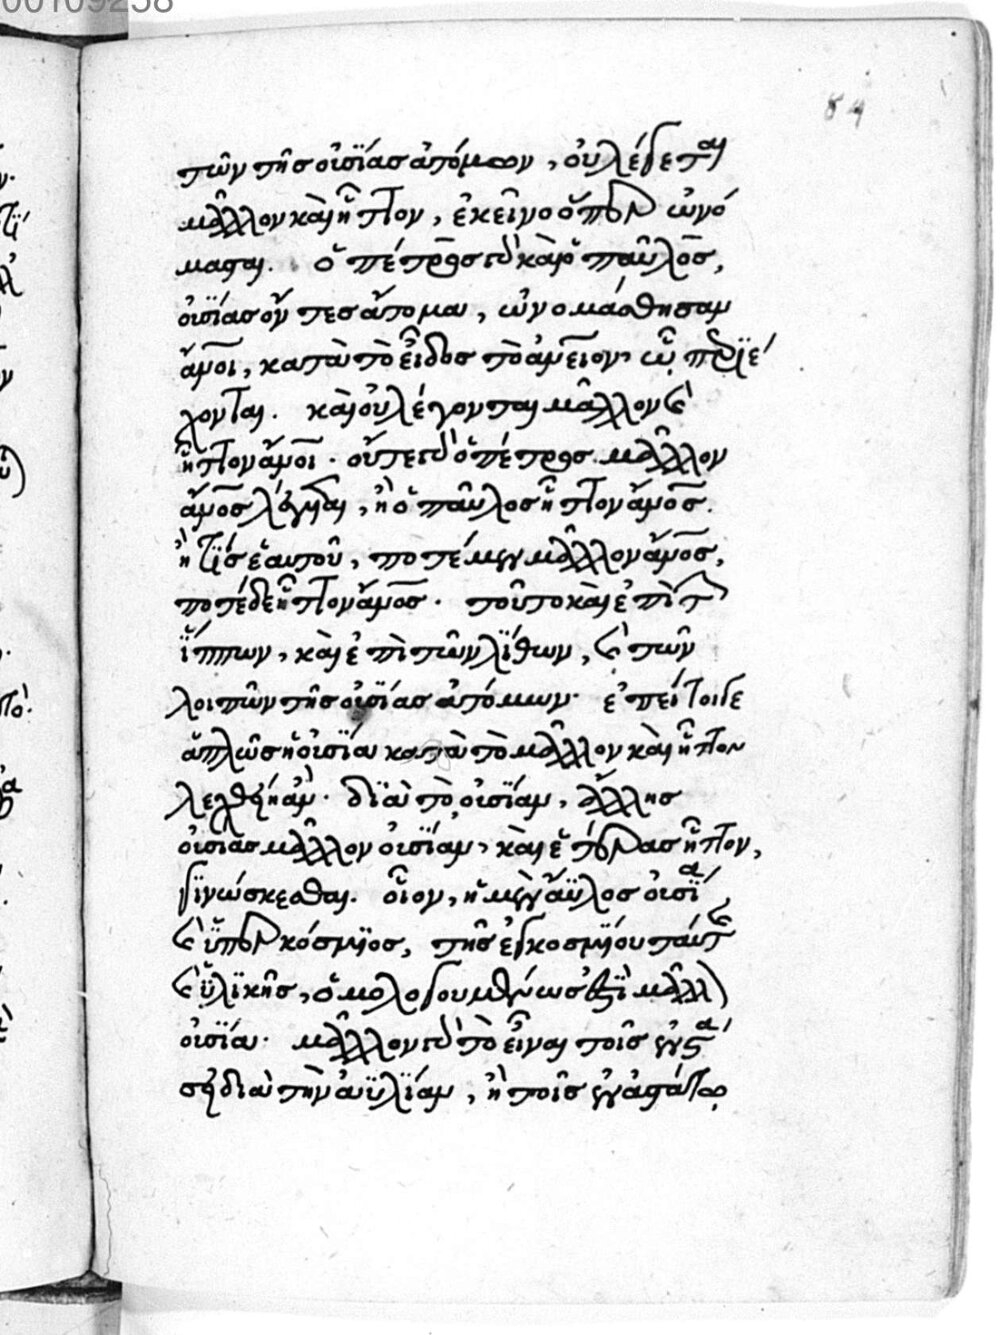 00109258
84
τῶν τῆς οὐσίας ἀτόμων, οὐ λέγεται
μᾶλλον καὶ ἧττον, ἐκεῖνο ὅπερ ὠνό
μασαι. ὁ πέτρος γὰρ καὶ ὁ παῦλος,
οὐσίας ὄντες ἄτομα, ὠνομάσθησαν
ἄνοι, κατὰ τὸ εἶδος τὸ ἀνειον, ᾧ περιέ
χονται. καὶ οὐ λέγονται μᾶλλον καὶ
ἧττον ἄνοι. οὔτε γὰρ ὁ πέτρος μᾶλλον
ἄνος λέγεται, ἢ ὁ παῦλος ἧττον ἄνος.
ἢ τίς ἑαυτοῦ, ποτέ μεν μᾶλλον ἄνος,
ποτέ δε ἧττον ἄνος. τοῦτο καὶ ἐπὶ τῶν
ἵππων, καὶ ἐπὶ τῶν λίθων, καὶ τῶν
λοιπῶν τῆς οὐσίας ἀτόμων. ἐπεί τοι γε
ἁπλῶς ἡ οὐσία κατὰ τὸ μᾶλλον καὶ ἧττον
λεχθείη ἀν. διὰ τὸ οὐσίαν, ἄλλης
οὐσίας μᾶλλον οὐσίαν, καὶ ἑτέρας ἧττον,
γινώσκεσθαι. οἷον, ἡ μὲν ἄϋλος οὐσία
καὶ ὑπερκόσμιος, τῆς ἐγκοσμίου ταύτης
καὶ ὑλικῆς, ὁμολογουμένως ἐστὶ μᾶλλον
οὐσία. μᾶλλον γὰρ τὸ εἶναι τοῖς ἐν στά
σει διὰ τὴν ἀϋλίαν, ἢ τοῖς ἐν ἀστάτῳ